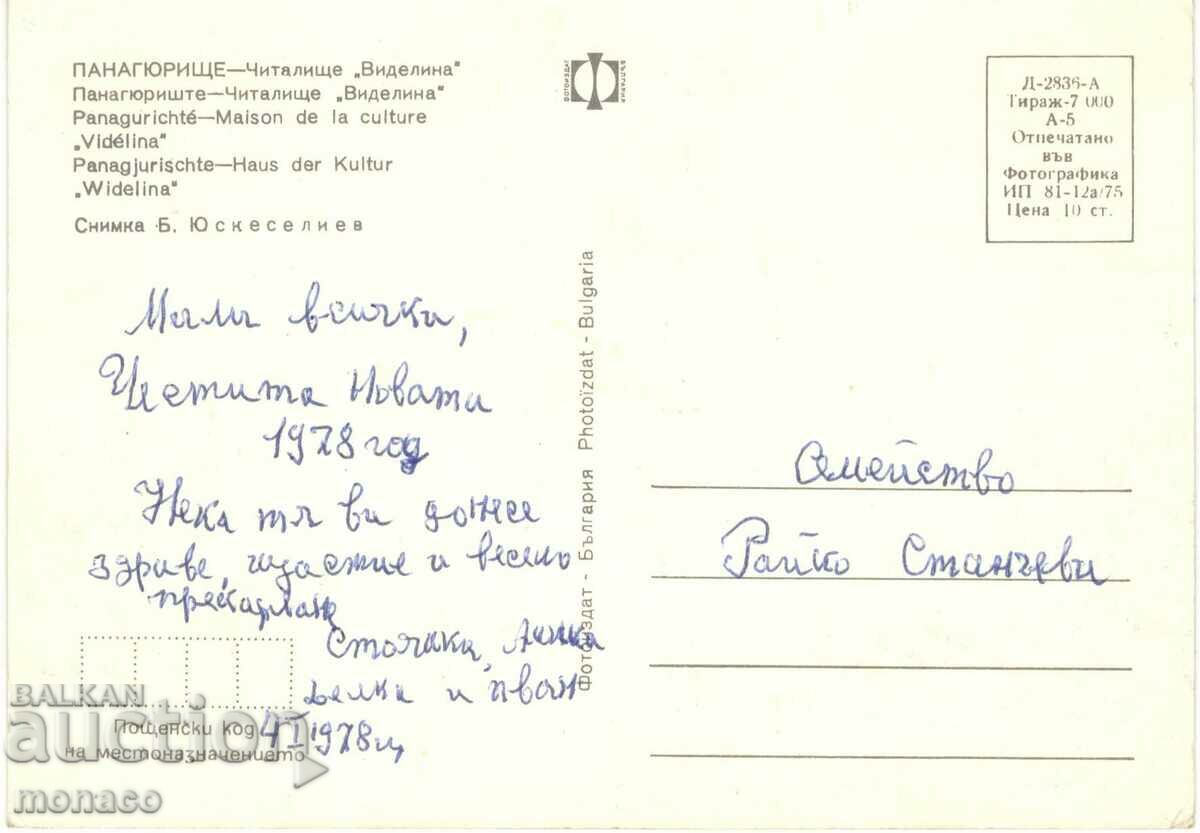 ПАНАГЮРИЩЕ—Читалище „Виделина"
Панагюриште—Читалище „Виделина"
Panagurichté—Maison de la culture
„Vidélina"
Panagjurischte—Haus der Kultur
„Widelina"
Снимка Б. Юскеселиев
ФОТОИЗДАТ
БЪЛГАРИЯ
Д-2836-А
Тираж-7 000
А-5
Отпечатано
във
Фотографика
ИП 81-12а/75
Цена 10 ст.
Мили всички,
Честита Новата
1978 год
Нека тя ви донесе
здраве, щастие и весело
прекарване
Стоянка,
и Иван
4 I 1978 г.
Фотоиздат - България Photoïzdat - Bulgaria
Семейство
Райко Станчеви
Пощенски код
на местоназначението
BALKAN
auction
monaco